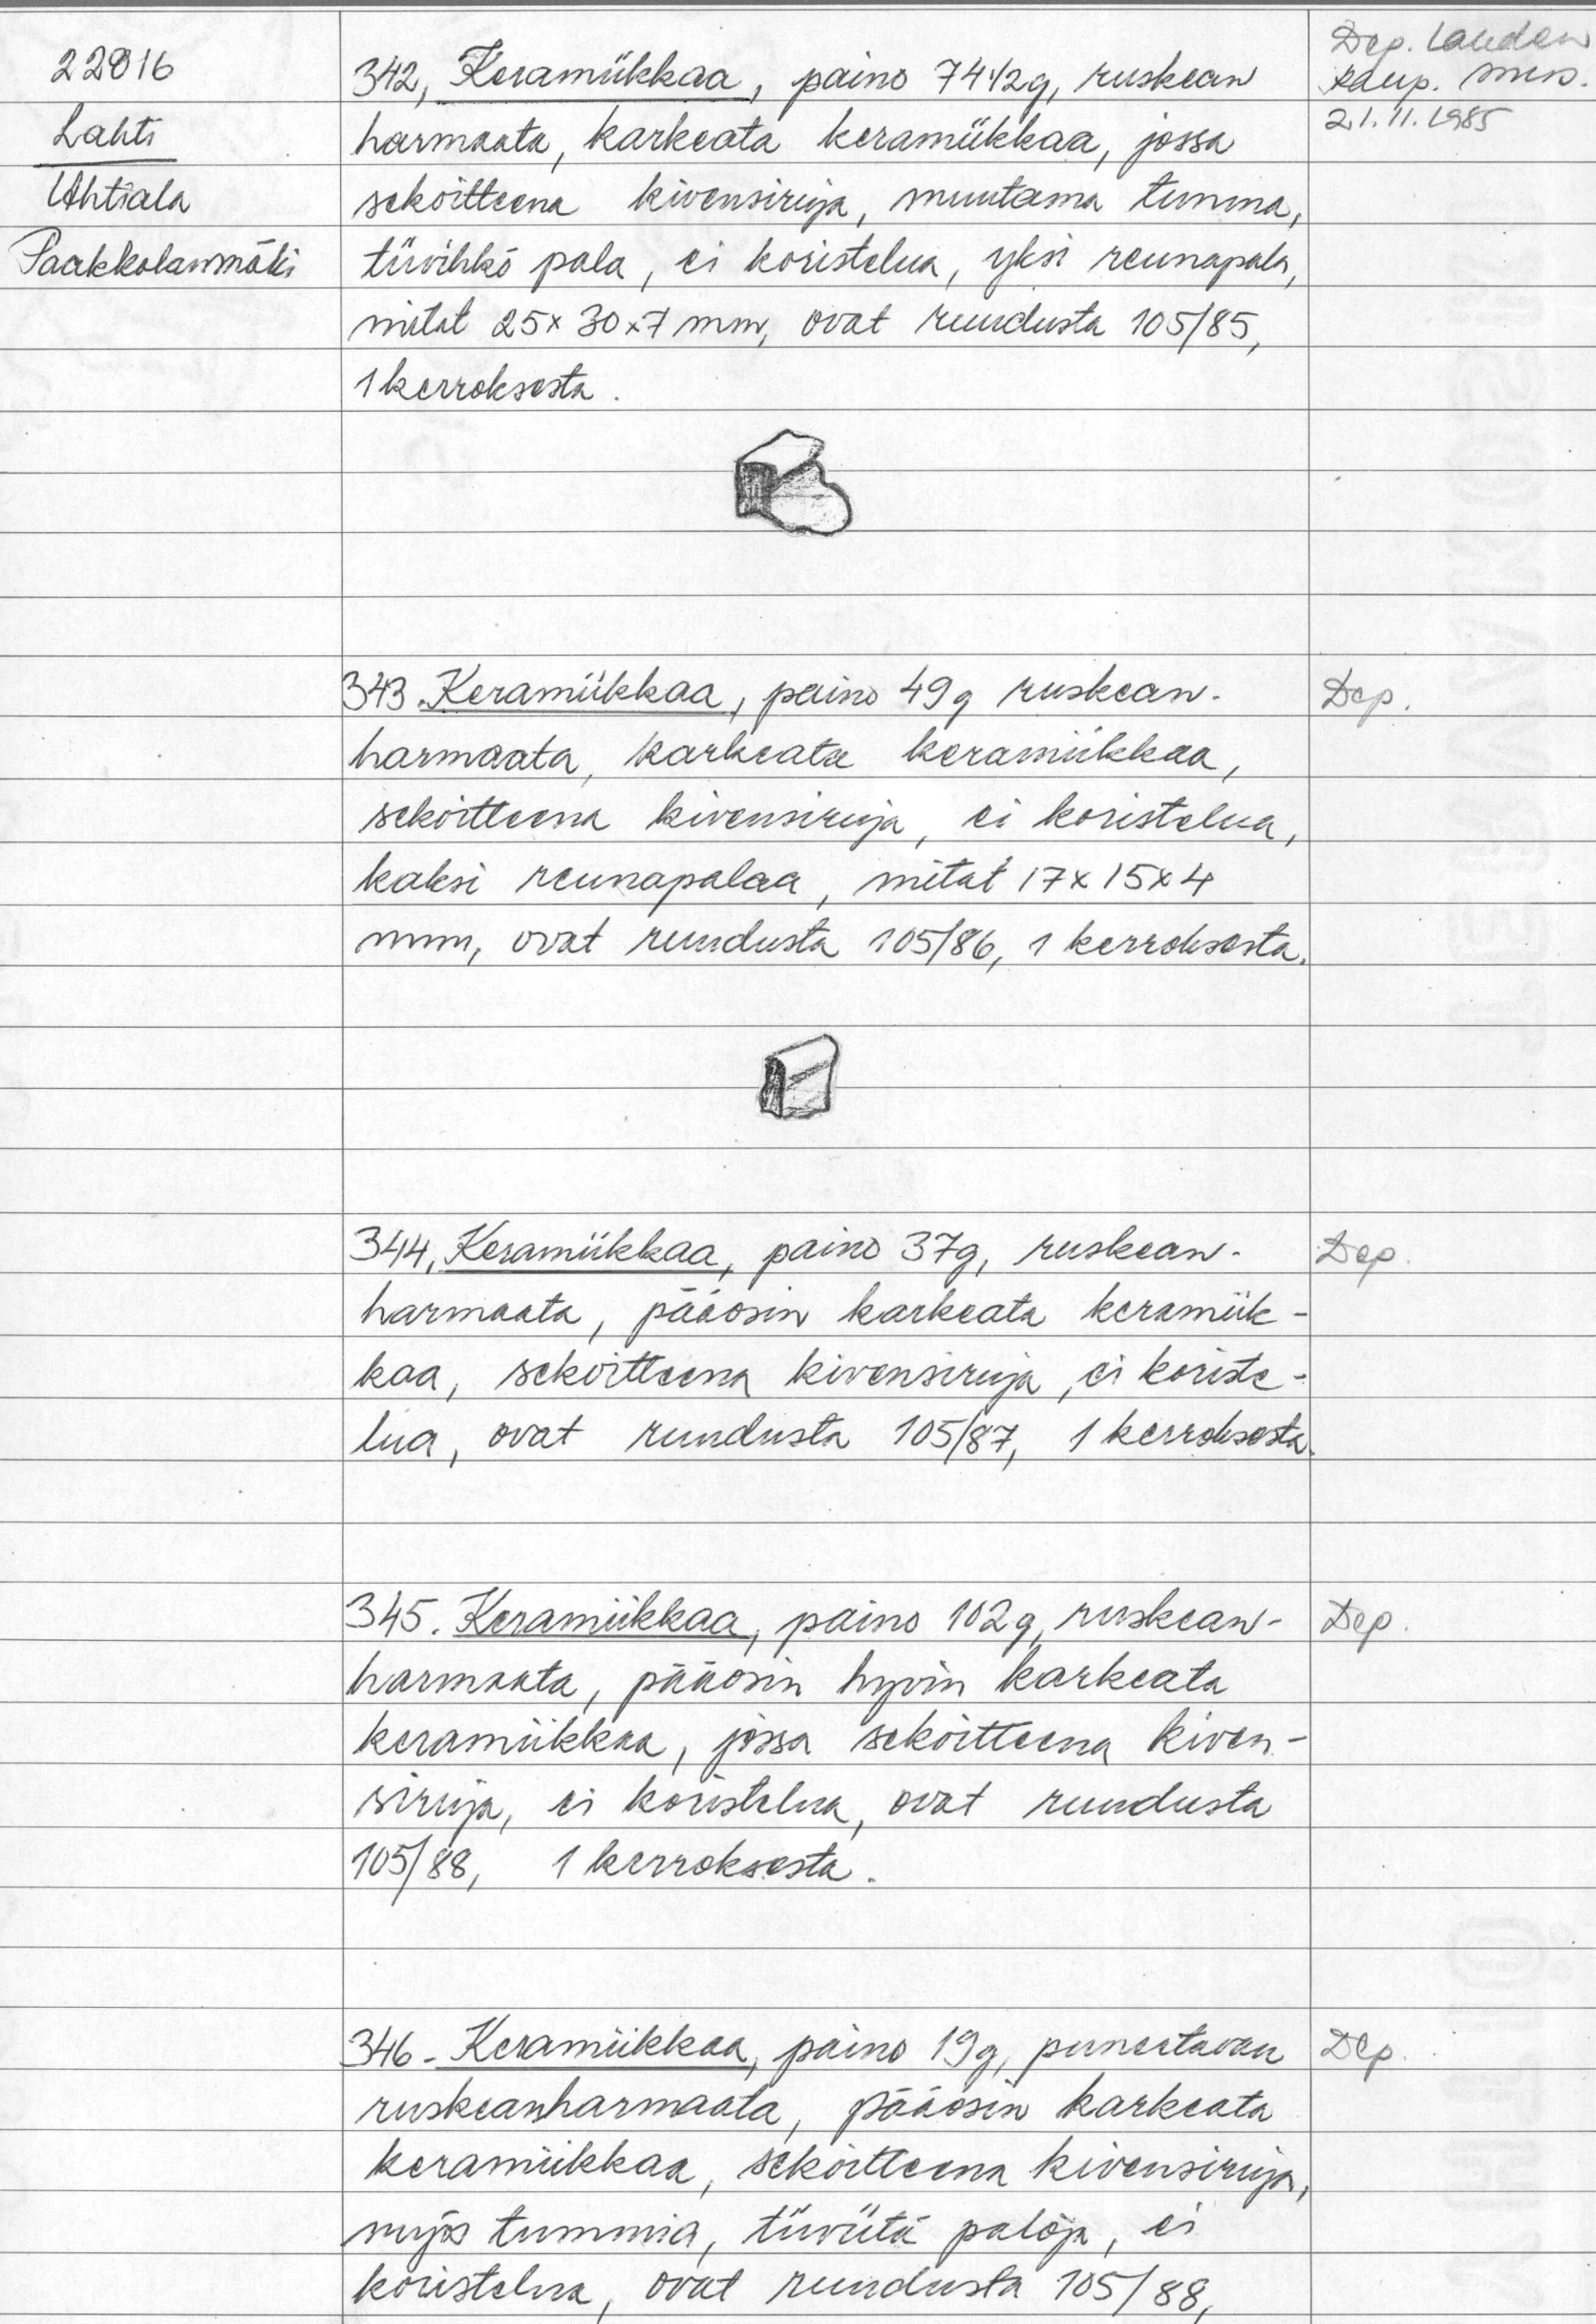 22816
Lahti
Ahtiala
Paakkolanmäki
342, Keramiikkaa, paino 74 1/2g, ruskean
harmaata, karkeata keramiikkaa, jossa
sekoitteena kivensiruja, muutama tumma,
tiivihkö pala, ei koristelua, yksi reunapala,
mitat 25x30x7 mm, ovat ruudusta 105/85,
1 kerroksesta.
Dep. Lahden
kaup. mus.
21.11.1985
343. Keramiikkaa, paino 49g ruskean-
harmaata, karkeata keramiikkaa,
sekoitteena kivensiruja, ei koristelua,
kaksi reunapalaa, mitat 17x15x4
mm, ovat ruudusta 105/86, 1 kerroksesta.
Dep.
344, Keramiikkaa, paino 37g, ruskean-
harmaata, pääosin karkeata keramiik-
kaa, sekoitteena kivensiruja, ei koriste-
lua, ovat ruudusta 105/87, 1 kerroksesta.
Dep.
345. Keramiikkaa, paino 102g, ruskean-
harmaata, pääosin hyvin karkeata
keramiikkaa, jossa sekoitteena kiven-
siruja, ei koristelua, ovat ruudusta
105/88, 1 kerroksesta.
Dep.
346- Keramiikkaa, paino 19g, punertavan
ruskeanharmaata, pääosin karkeata
keramiikkaa, sekoitteena kivensiruja,
myös tummia, tiiviitä paloja, ei
koristelua, ovat ruudusta 105/88,
Dep.